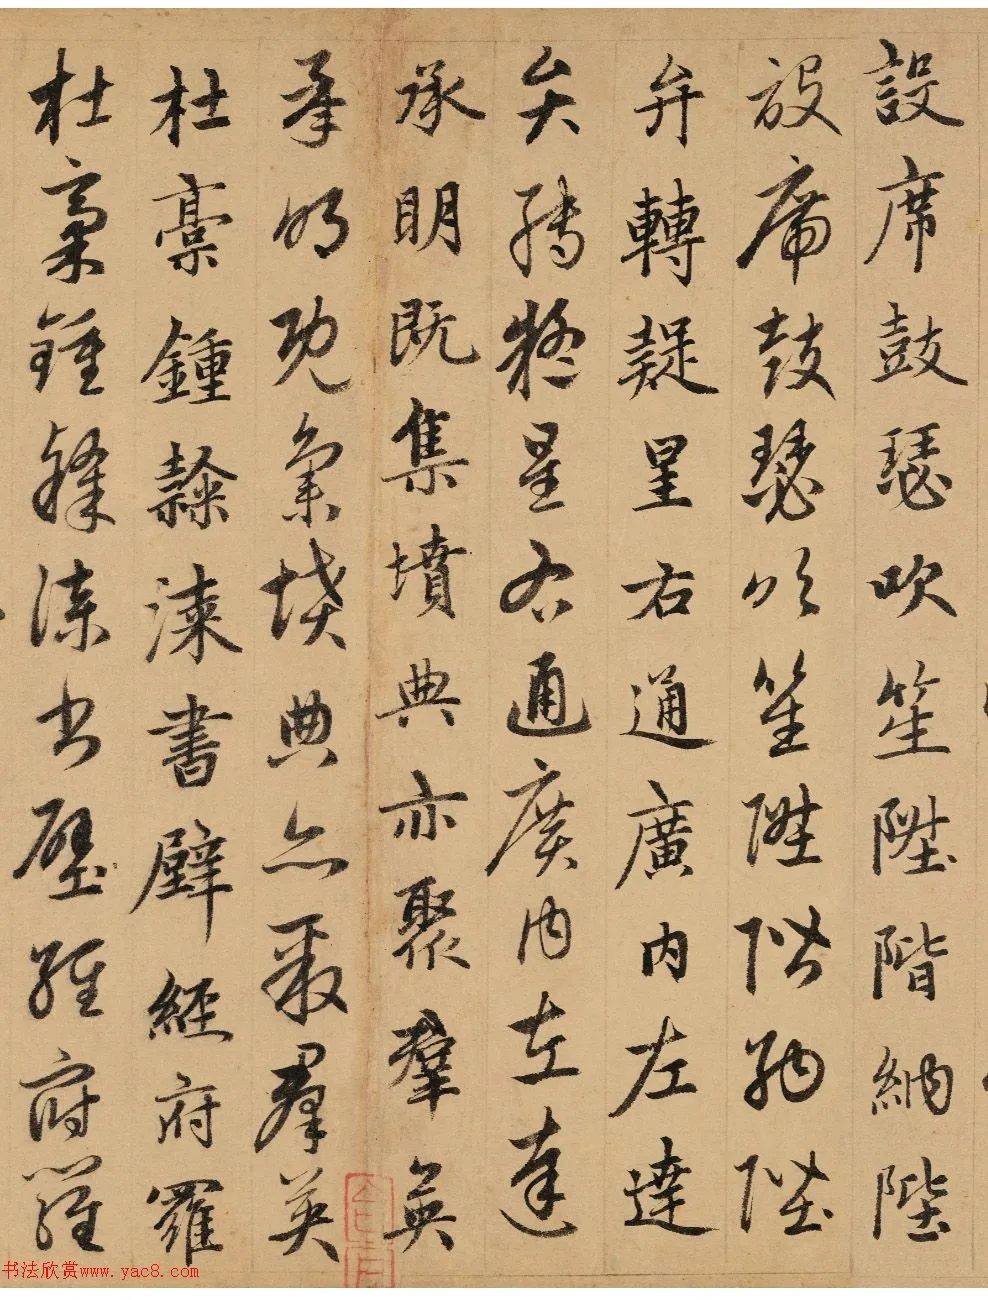 設席鼓瑟吹笙陞階納陛
設席鼓瑟吹笙陞階納陛
弁轉疑星右通廣內左達
弁轉疑星右通廣內左達
承明既集墳典亦聚群英
承明既集墳典亦聚群英
杜稾鍾隸漆書壁經府羅
杜稾鍾隸漆書壁經府羅
书法欣赏www.yac8.com